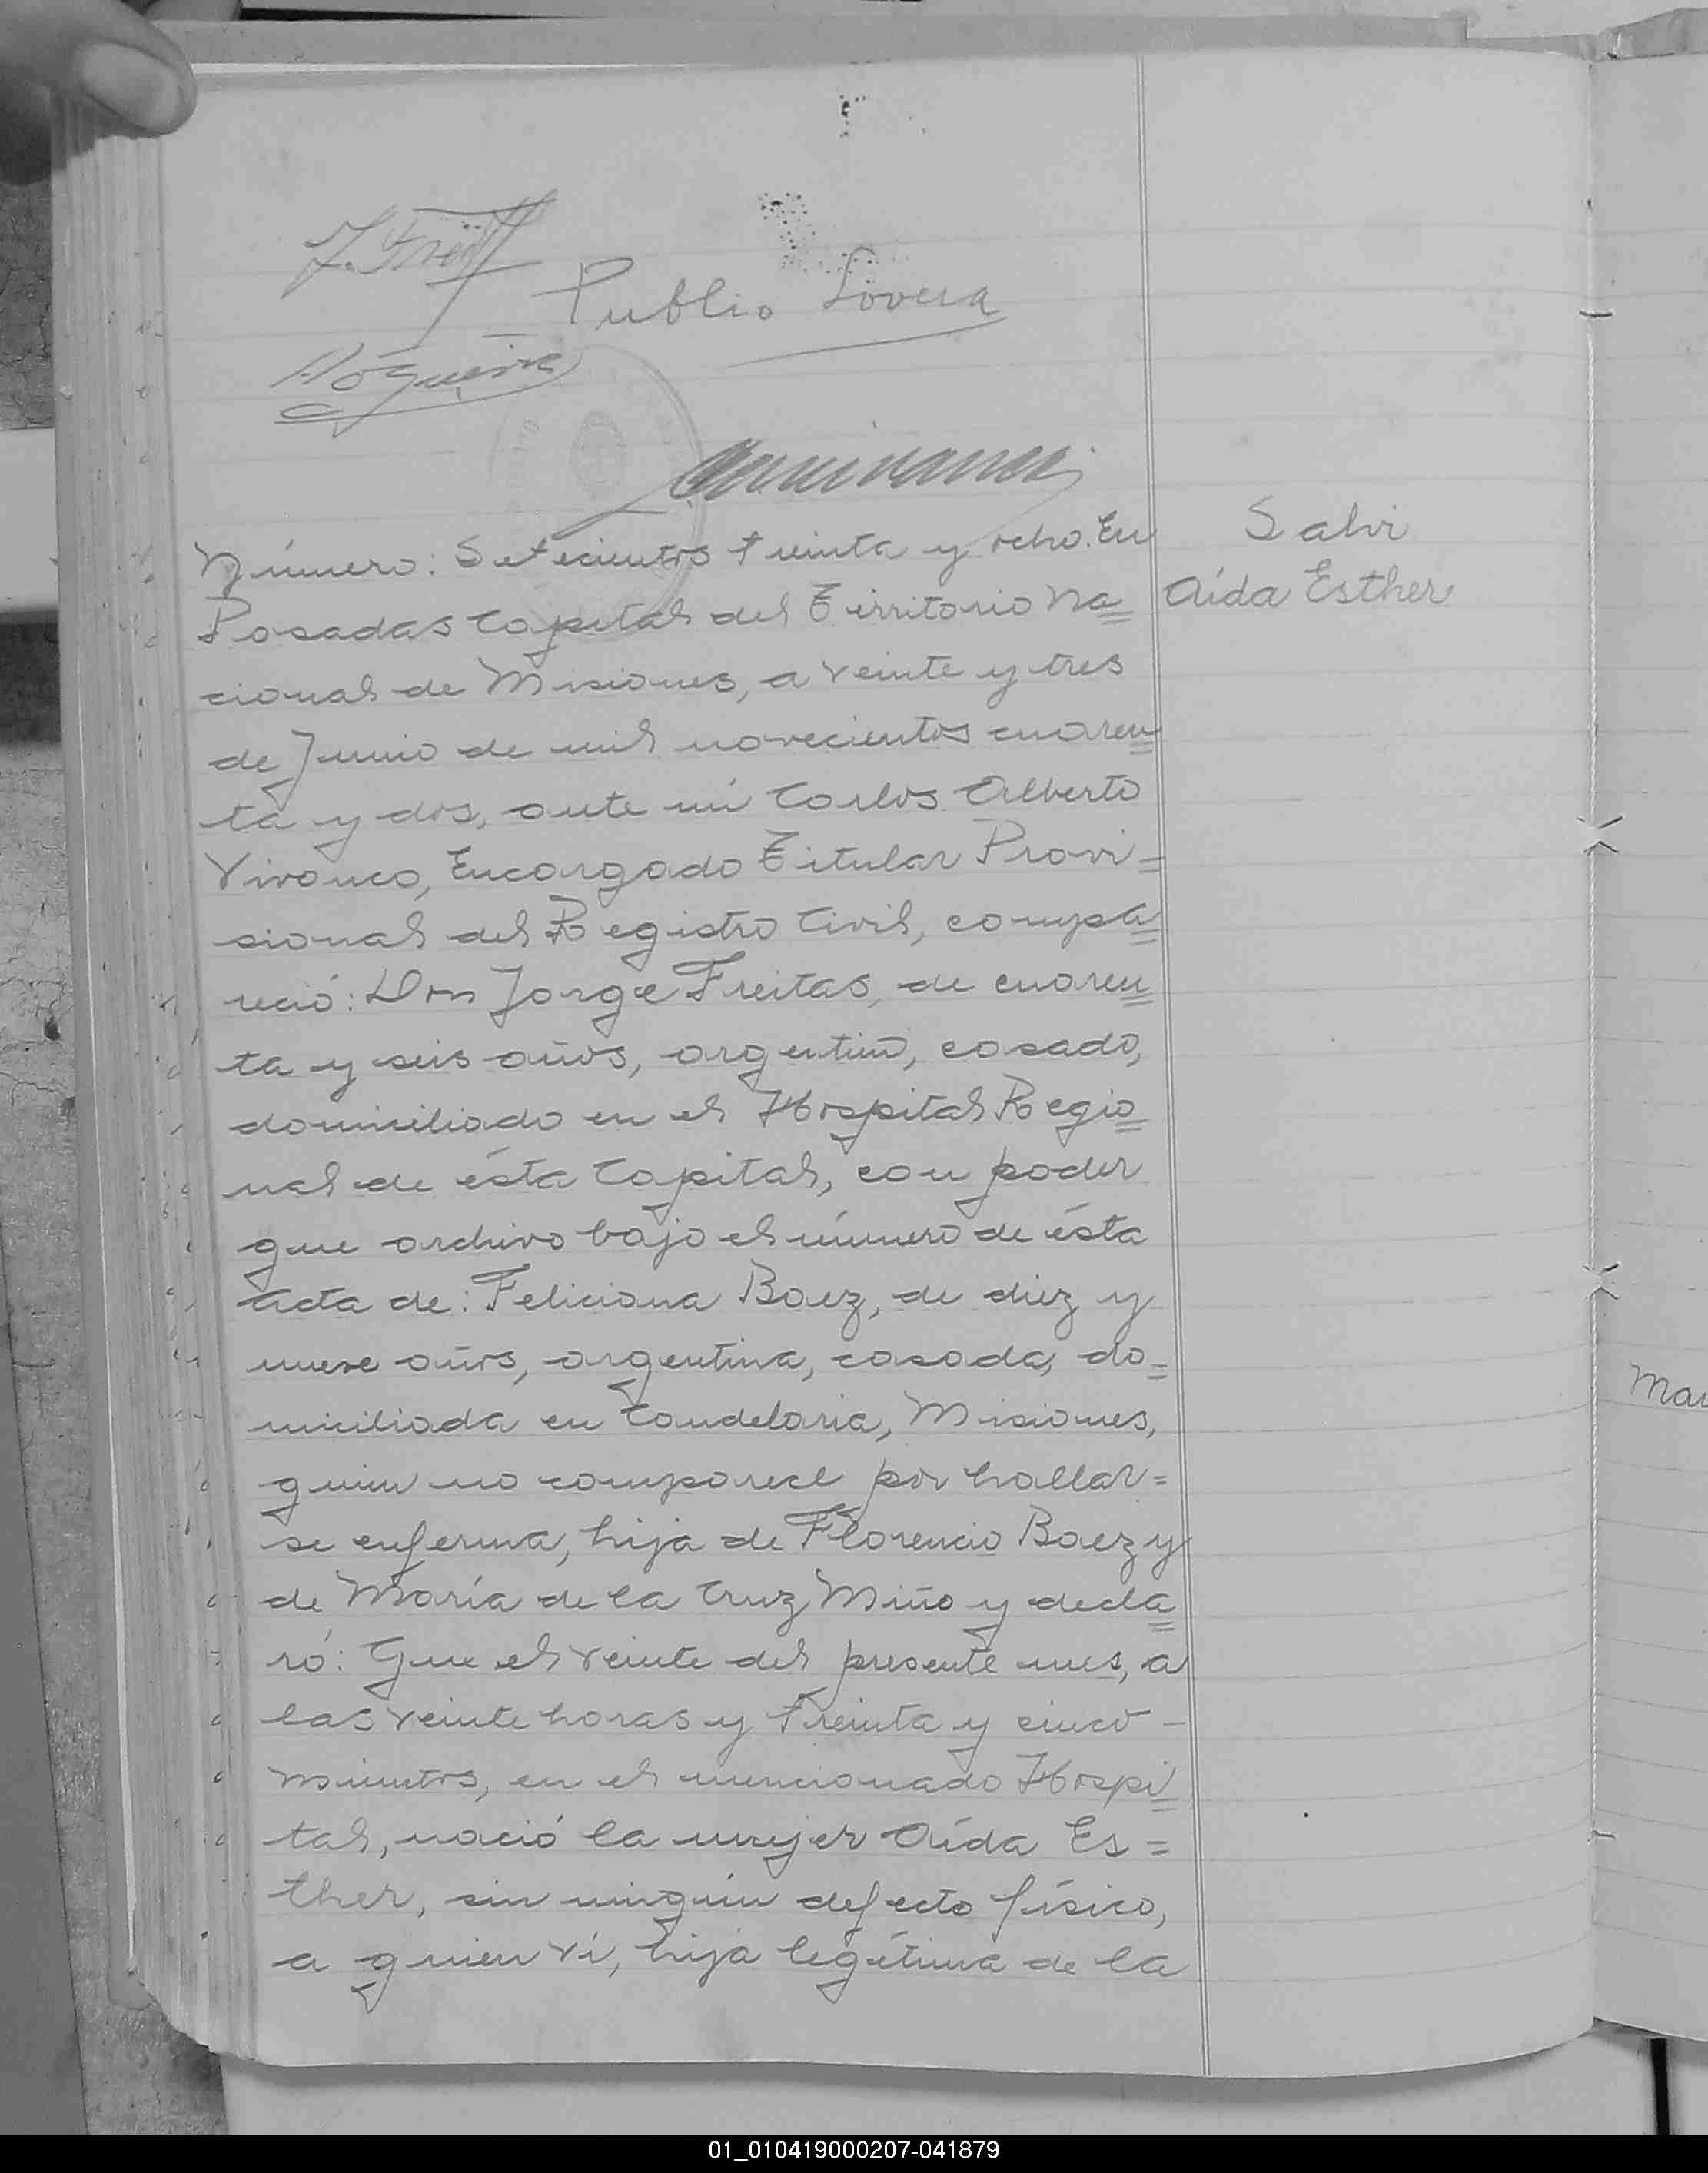 Publio Lovera
Número: Setecientos treinta y ocho. En
Salvi
Posadas Capital del Territorio Na=
Aída Esther
cional de Misiones, a veinte y tres
de Junio de mil novecientos cuaren=
ta y dos, ante mí Carlos Alberto
Vivanco, Encargado Titular Provi=
sional del Registro Civil, compa=
reció: Don Jorge Freitas, de cuaren=
ta y seis años, argentino, casado,
domiciliado en el Hospital Regio=
nal de ésta Capital, con poder
que archivo bajo el número de ésta
acta de: Feliciana Baez, de diez y
nueve años, argentina, casada, do=
miciliada en Candelaria, Misiones,
Mar
quien no comparece por hallar=
se enferma, hija de Florencio Baez y
de María de la Cruz Miño y decla=
ró: Que el veinte del presente mes, a
las veinte horas y treinta y cinco -
minutos, en el mencionado Hospi=
tal, nació la mujer Aída Es=
ther, sin ningún defecto físico,
a quien ví, hija legítima de la
01_010419000207-041879